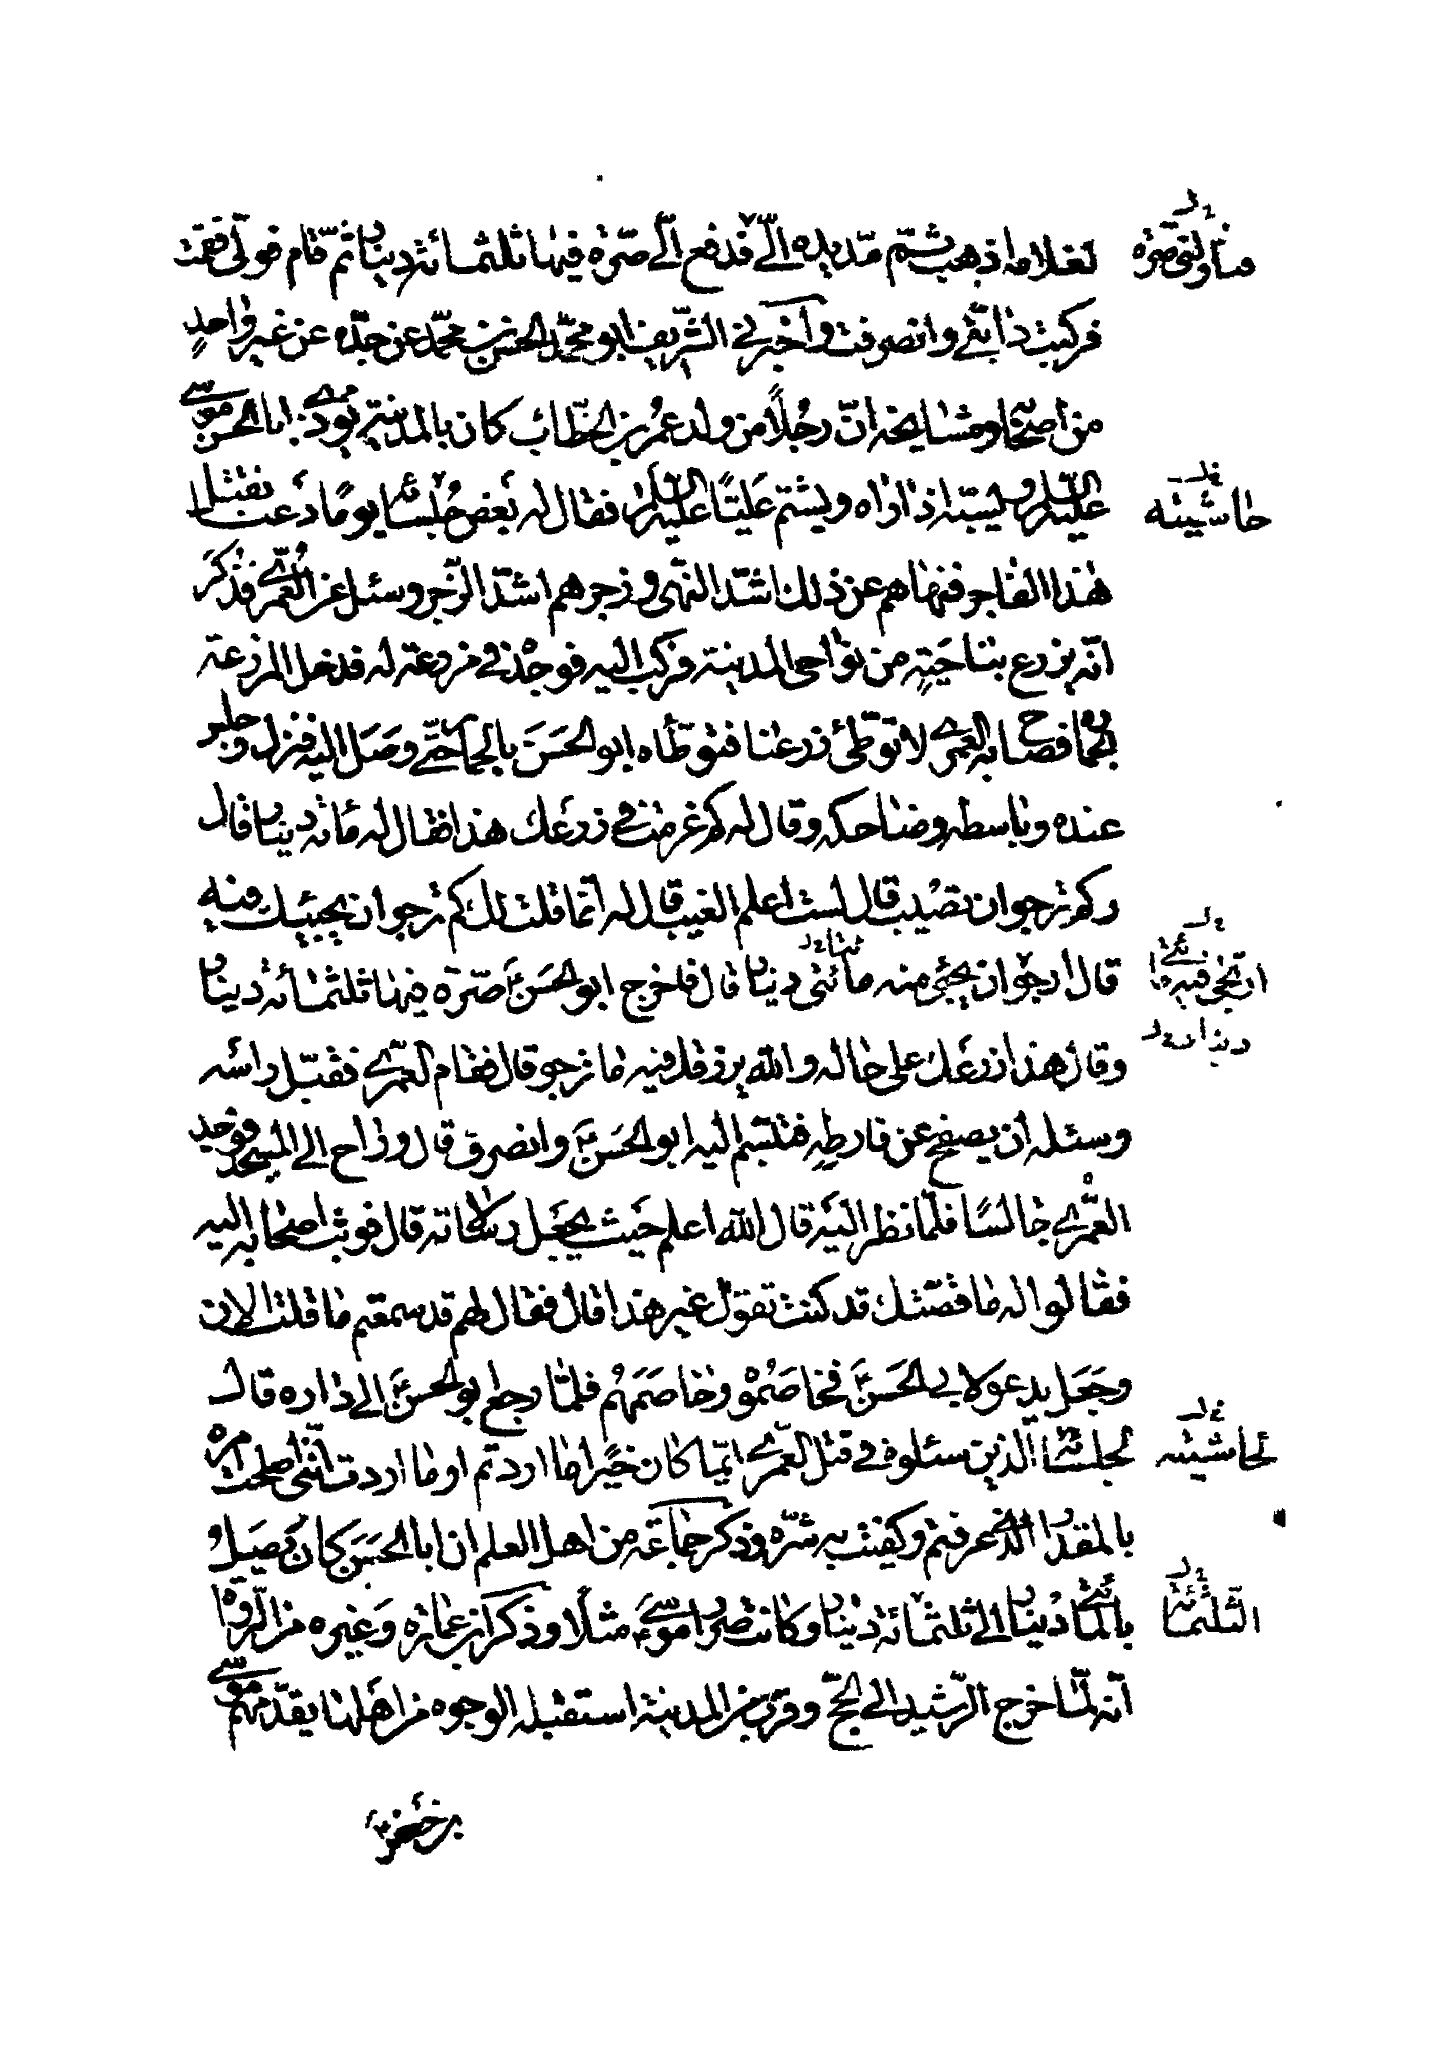 لغلامه اذهب ثم مدّ يده الىّ فدفع الىّ صرّة فيها ثلثمائة دينار ثم قام فولّى فقمت
فناولنى صرّة
فركبت دابّتى وانصرفت واخبرنى الشريف ابو محمّد الحسن بن محمّد عن جدّه عن غير واحدٍ
من اصحابه ومشايخه انّ رجُلاً من ولد عمر بن الخطّاب كان بالمدينة يؤذى ابا الحسن موسى
عليه السلم ويسبّه اذا راه ويشتم عليّا عليه السلم فقال له بعض جُلسائه يوماً دعنا نقتل
حاشيته
هذا الفاجر فنهاهم عن ذلك اشدّ النّهى وزجرهم اشدّ الزّجر وسئل عن العُمرى فذكر
انّه يزرع بناحيةٍ من نواحى المدينة فركب اليه فوجده فى مزرعة له فدخل المزرعة
بحماره فصاح به العمرى لا توطئ زرعنا فتوطّأه ابو الحسن بالحمار حتّى وصل اليه فنزل وجلس
عنده وباسطه وضاحكه وقال له كم غرمت فى زرعك هذا فقال له مائة دينار قال
وكم ترجو ان تصيب قال لست اعلم الغيب قال له انّما قلت لك كم ترجو ان يجيئك فيه
قال ارجو ان يجئى منه مائتى دينار قال فاخرج ابو الحسن صرّة فيها ثلثمائة دينار
ان يجئ فيه مائتى
دينار
وقال هذا زرعك على حاله والله يرزقك فيه ما ترجو قال فقام العمرى فقبّل رأسه
وسئله ان يصفح عن فارطه فتبسّم اليه ابو الحسن وانصرف قال وراح الى المسجد فوجد
العمرى جالسًا فلمّا نظر اليه قال الله اعلم حيث يجعل رسالاته قال فوثب اصحابه اليه
فقالوا له ما قصّتك قد كنت تقول غير هذا قال فقال لهم قد سمعتم ما قلت الان
وجعل يدعو لابى الحسن فخاصموه وخاصمهم فلمّا رجع ابو الحسن الى داره قال
لجلسائه الّذين سئلوه فى قتل العمرى ايّما كان خيرًا ما اردتم او ما اردت انّنى اصلحت امره
لحاشيته
بالمقدار الذى عرفتم وكفيت به شرّه وذكر جماعة من اهل العلم ان ابا الحسن كان يصل
بالمائتى دينار الى ثلثمائة دينار وكانت صرار موسى مثلاً وذكر ابن عمارة وغيره من الرواة
الثلثمائة
انّه لمّا خرج الرّشيد الى الحجّ وقرب من المدينة استقبله الوجوه من اهلها يقدّمهم موسى
بن جعفر